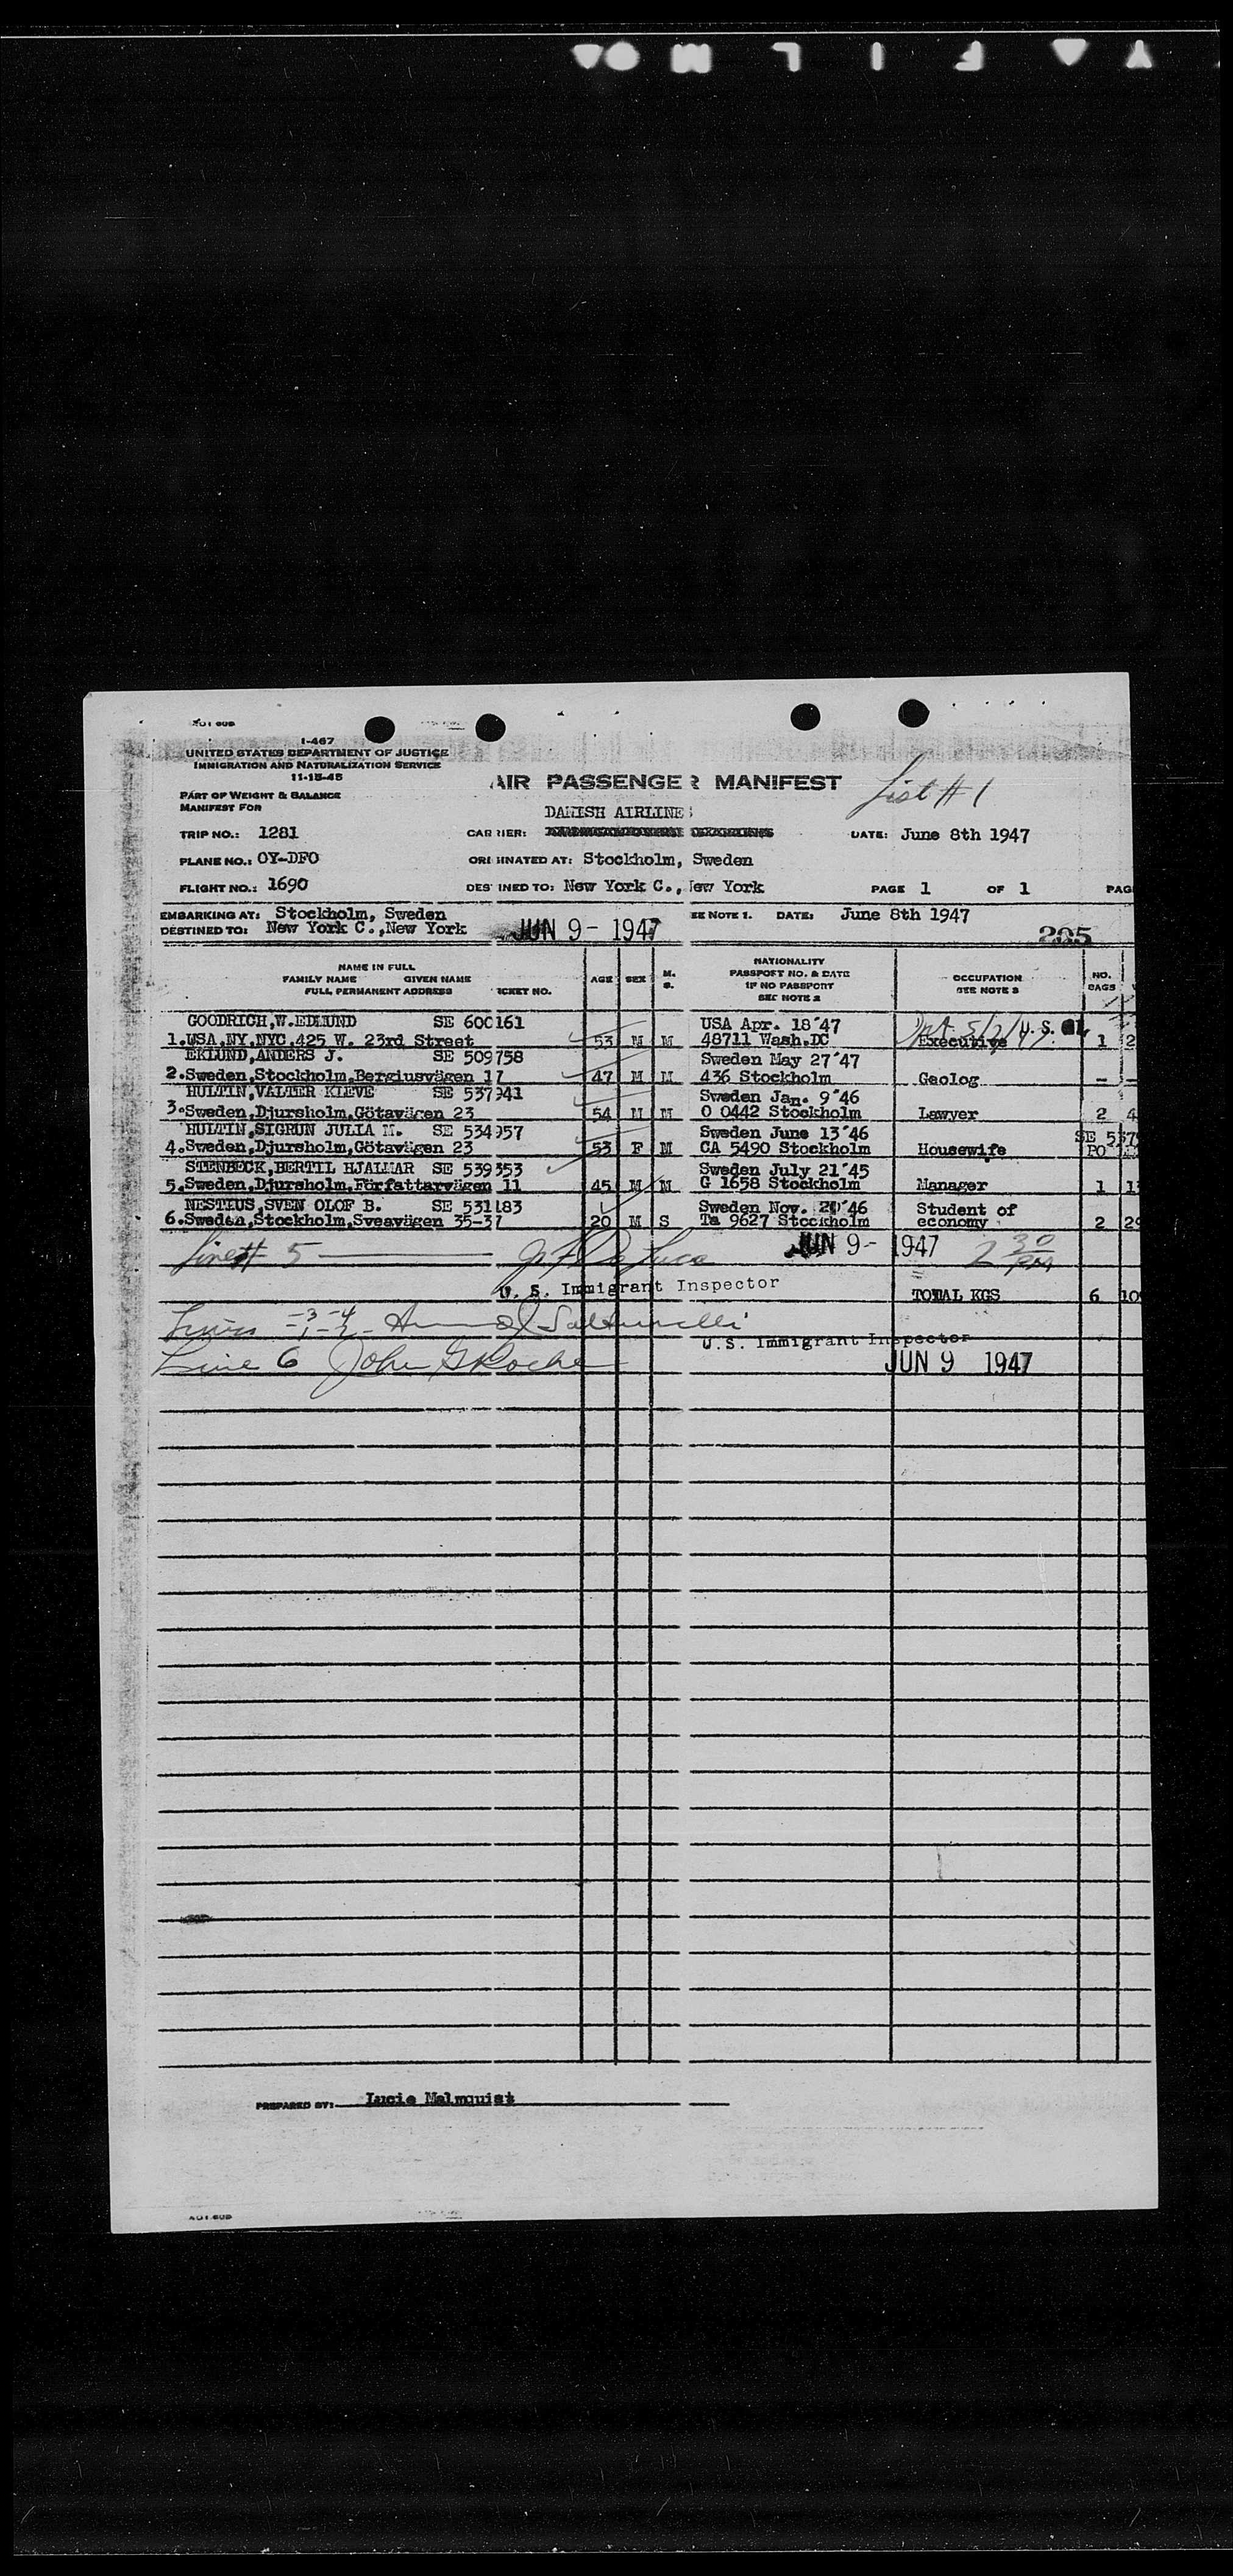 I-467
UNITED STATES DEPARTMENT OF JUSTICE
IMMIGRATION AND NATURALIZATION SERVICE
11-15-45
AIR PASSENGER MANIFEST
List # 1
PART OF WEIGHT & BALANCE
MANIFEST FOR
DANISH AIRLINES
TRIP NO.: 1281
CARRIER:
DATE: June 8th 1947
PLANE NO.: OY-DFO
ORIGINATED AT: Stockholm, Sweden
FLIGHT NO.: 1690
DESTINED TO: New York C., New York
PAGE 1 OF 1
PAG
EMBARKING AT: Stockholm, Sweden
DESTINED TO: New York C.,New York
JUN 9 - 1947
EE NOTE 1. DATE: June 8th 1947
205
NAME IN FULL
FAMILY NAME GIVEN NAME
FULL PERMANENT ADDRESS
ICKET NO.
AGE
SEX
M. S.
NATIONALITY
PASSPORT NO. & DATE
IF NO PASSPORT
SEE NOTE 2
OCCUPATION
SEE NOTE 3
NO. BAGS
GOODRICH,W.EDLUND SE 600161 USA Apr. 18'47 5/2/ U.S.
1.USA,NY,NYC,425 W. 23rd Street 53 M M 48711 Wash.DC Executive 1 2
EKLUND,ANDERS J. SE 509758 Sweden May 27'47
2.Sweden,Stockholm,Bergiusvägen 17 47 M M 436 Stockholm Geolog - -
HULTIN,VALTER KLEVE SE 537941 Sweden Jan. 9'46
3.Sweden,Djursholm,Götavägen 23 54 M M O 0442 Stockholm Lawyer 2 4
HULTIN,SIGRUN JULIA M. SE 534957 Sweden June 13'46 SE 537
4.Sweden,Djursholm,Götavägen 23 53 F M CA 5490 Stockholm Housewife PO
STENBECK,BERTIL HJALMAR SE 539353 Sweden July 21'45
5.Sweden,Djursholm,Författarvägen 11 45 M M G 1658 Stockholm Manager 1 1
NESTIUS,SVEN OLOF B. SE 531183 Sweden Nov. 20'46 Student of
6.Sweden,Stockholm,Sveavägen 35-37 20 M S Ta 9627 Stockholm economy 2 29
Line # 5 J F De Luca JUN 9 - 1947 2 30 PM
U. S. Immigrant Inspector
TOTAL KGS 6 10
Lines -1-2-3-4
U.S. Immigrant Inspector
Line 6 John G Roche
JUN 9 1947
PREPARED BY: Lucie Malmquist